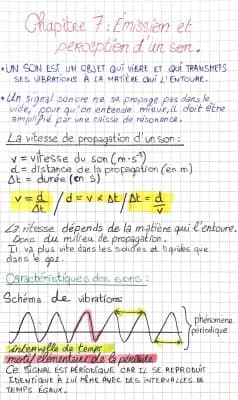 Chapitre 7 : Émission et
perception d'un son.
• UN SON EST UN OBJET QUI VIBRE ET QUI TRANSMETS
SES VIBRATIONS À LA MATIÈRE QUI L'ENTOURE.
• Un signal sonore ne se propage pas dans le
vide, pour qu'on entende mieux, il doit être
amplifié par une caisse de résonance.
La vitesse de propagation d'un son :
v = vitesse du son (m·s⁻¹)
d = distance de la propagation (en m)
Δt = durée (en s)
v = d/Δt / d = v × Δt / Δt = d/v
La vitesse dépends de la matière qui l'entoure.
Donc du milieu de propagation.
Il va plus vite dans les solides et liquides que
dans le gaz.
Caractéristiques des sons :
Schéma de vibrations :
phénomène
périodique
intervalle de temps
motif élémentaire de la période
CE SIGNAL EST PÉRIODIQUE CAR IL SE REPRODUIT
IDENTIQUE À LUI MÊME AVEC DES INTERVALLES DE
TEMPS ÉGAUX.